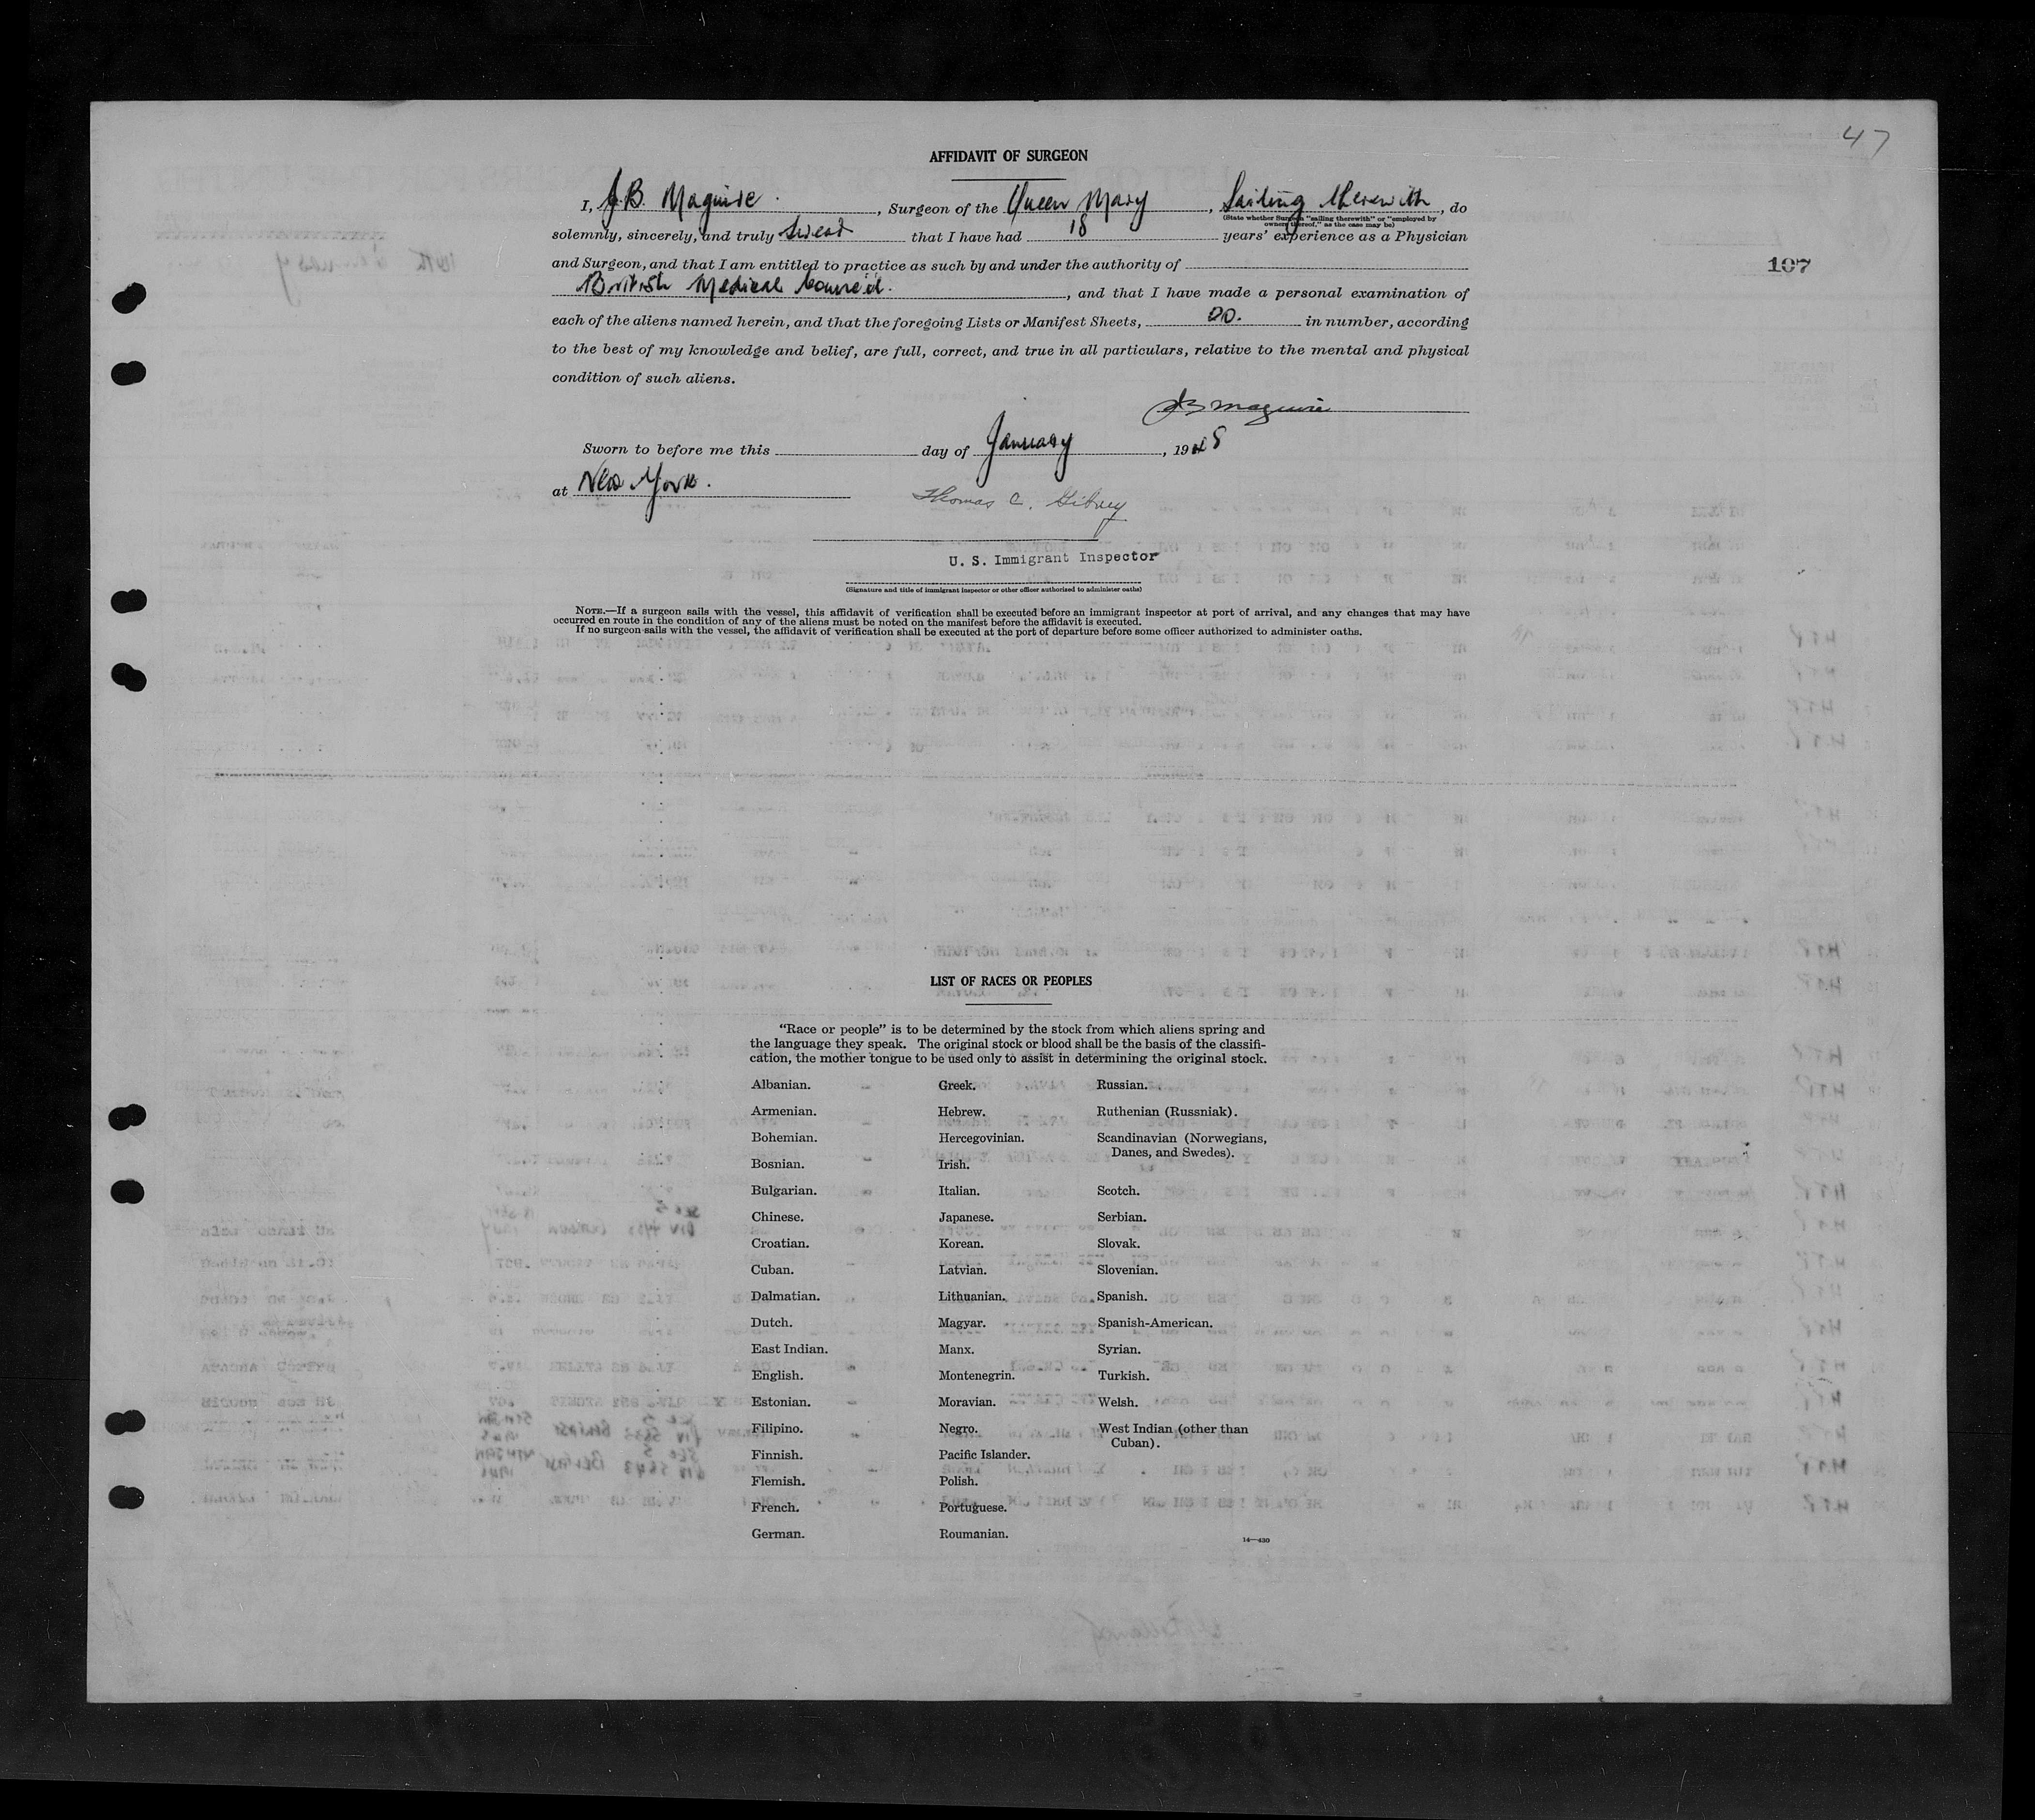 47
AFFIDAVIT OF SURGEON
I, J.B. Maguire., Surgeon of the Queen Mary, Sailing therewith, do
(State whether Surgeon "sailing therewith" or "employed by
owners thereof," as the case may be)
solemnly, sincerely, and truly swear that I have had 18 years' experience as a Physician
107
and Surgeon, and that I am entitled to practice as such by and under the authority of
British Medical Council., and that I have made a personal examination of
each of the aliens named herein, and that the foregoing Lists or Manifest Sheets, in number, according
to the best of my knowledge and belief, are full, correct, and true in all particulars, relative to the mental and physical
condition of such aliens.
JB Maguire
Sworn to before me this day of January, 1948
at New York.
Thomas C. Gibney
U. S. Immigrant Inspector
(Signature and title of immigrant inspector or other officer authorized to administer oaths)
NOTE.—If a surgeon sails with the vessel, this affidavit of verification shall be executed before an immigrant inspector at port of arrival, and any changes that may have
occurred en route in the condition of any of the aliens must be noted on the manifest before the affidavit is executed.
If no surgeon sails with the vessel, the affidavit of verification shall be executed at the port of departure before some officer authorized to administer oaths.
LIST OF RACES OR PEOPLES
"Race or people" is to be determined by the stock from which aliens spring and
the language they speak. The original stock or blood shall be the basis of the classifi-
cation, the mother tongue to be used only to assist in determining the original stock.
Albanian.
Armenian.
Bohemian.
Bosnian.
Bulgarian.
Chinese.
Croatian.
Cuban.
Dalmatian.
Dutch.
East Indian.
English.
Estonian.
Filipino.
Finnish.
Flemish.
French.
German.
Greek.
Hebrew.
Hercegovinian.
Irish.
Italian.
Japanese.
Korean.
Latvian.
Lithuanian.
Magyar.
Manx.
Montenegrin.
Moravian.
Negro.
Pacific Islander.
Polish.
Portuguese.
Roumanian.
Russian.
Ruthenian (Russniak).
Scandinavian (Norwegians,
Danes, and Swedes).
Scotch.
Serbian.
Slovak.
Slovenian.
Spanish.
Spanish-American.
Syrian.
Turkish.
Welsh.
West Indian (other than
Cuban).
14—430